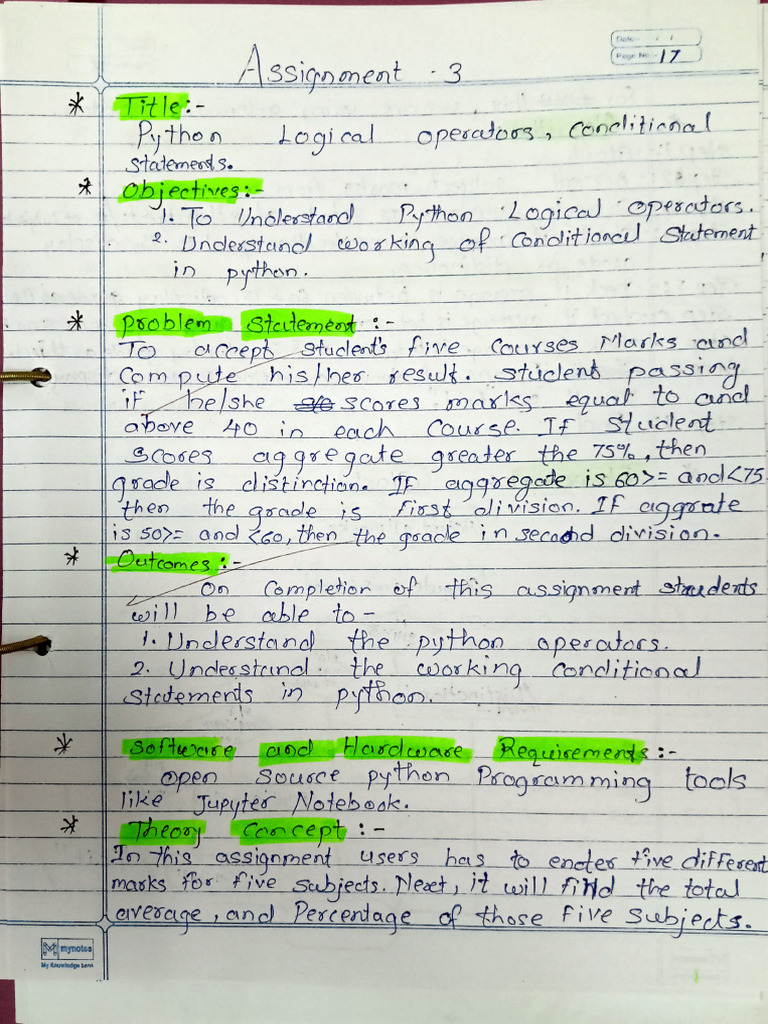 Date :- / /
Page No :- 17
Assignment - 3
* Title:-
Python Logical operators, conditional
statements.
* Objectives:-
1. To Understand Python Logical operators.
2. Understand working of Conditional Statement
in python.
* Problem Statement :-
To accept student's five courses Marks and
Compute his/her result. student passing
if he/she scores marks equal to and
above 40 in each Course. If student
scores aggregate greater the 75%, then
grade is distinction. IF aggregate is 60>= and <75
then the grade is first division. If aggrate
is 50>= and <60, then the grade in second division.
* Outcomes:-
On Completion of this assignment students
will be able to -
1. Understand the python operators.
2. Understand the working conditional
statements in python.
* Software and Hardware Requirements:-
open source python Programming tools
like Jupyter Notebook.
* Theory Concept :-
In this assignment users has to enoter five different
marks for five subjects. Next, it will find the total
average, and Percentage of those five subjects.
mynotes
My Knowledge bank